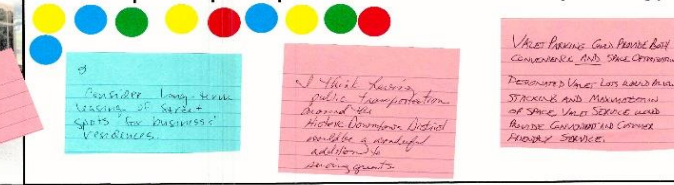 Consider long-term
leasing of street
spots for business &
residences.
I think having
public transportation
around the
Historic Downtown District
would be a wonderful
addition to
guests
VALET PARKING COULD PROVIDE BOTH
CONVENIENCE AND SPACE OPTIMIZATION
DESIGNATED VALET LOTS WOULD ALLOW
STACKING AND MAXIMIZATION
OF SPACE. VALET SERVICE WOULD
PROVIDE CONVENIENT AND CUSTOMER
FRIENDLY SERVICE.